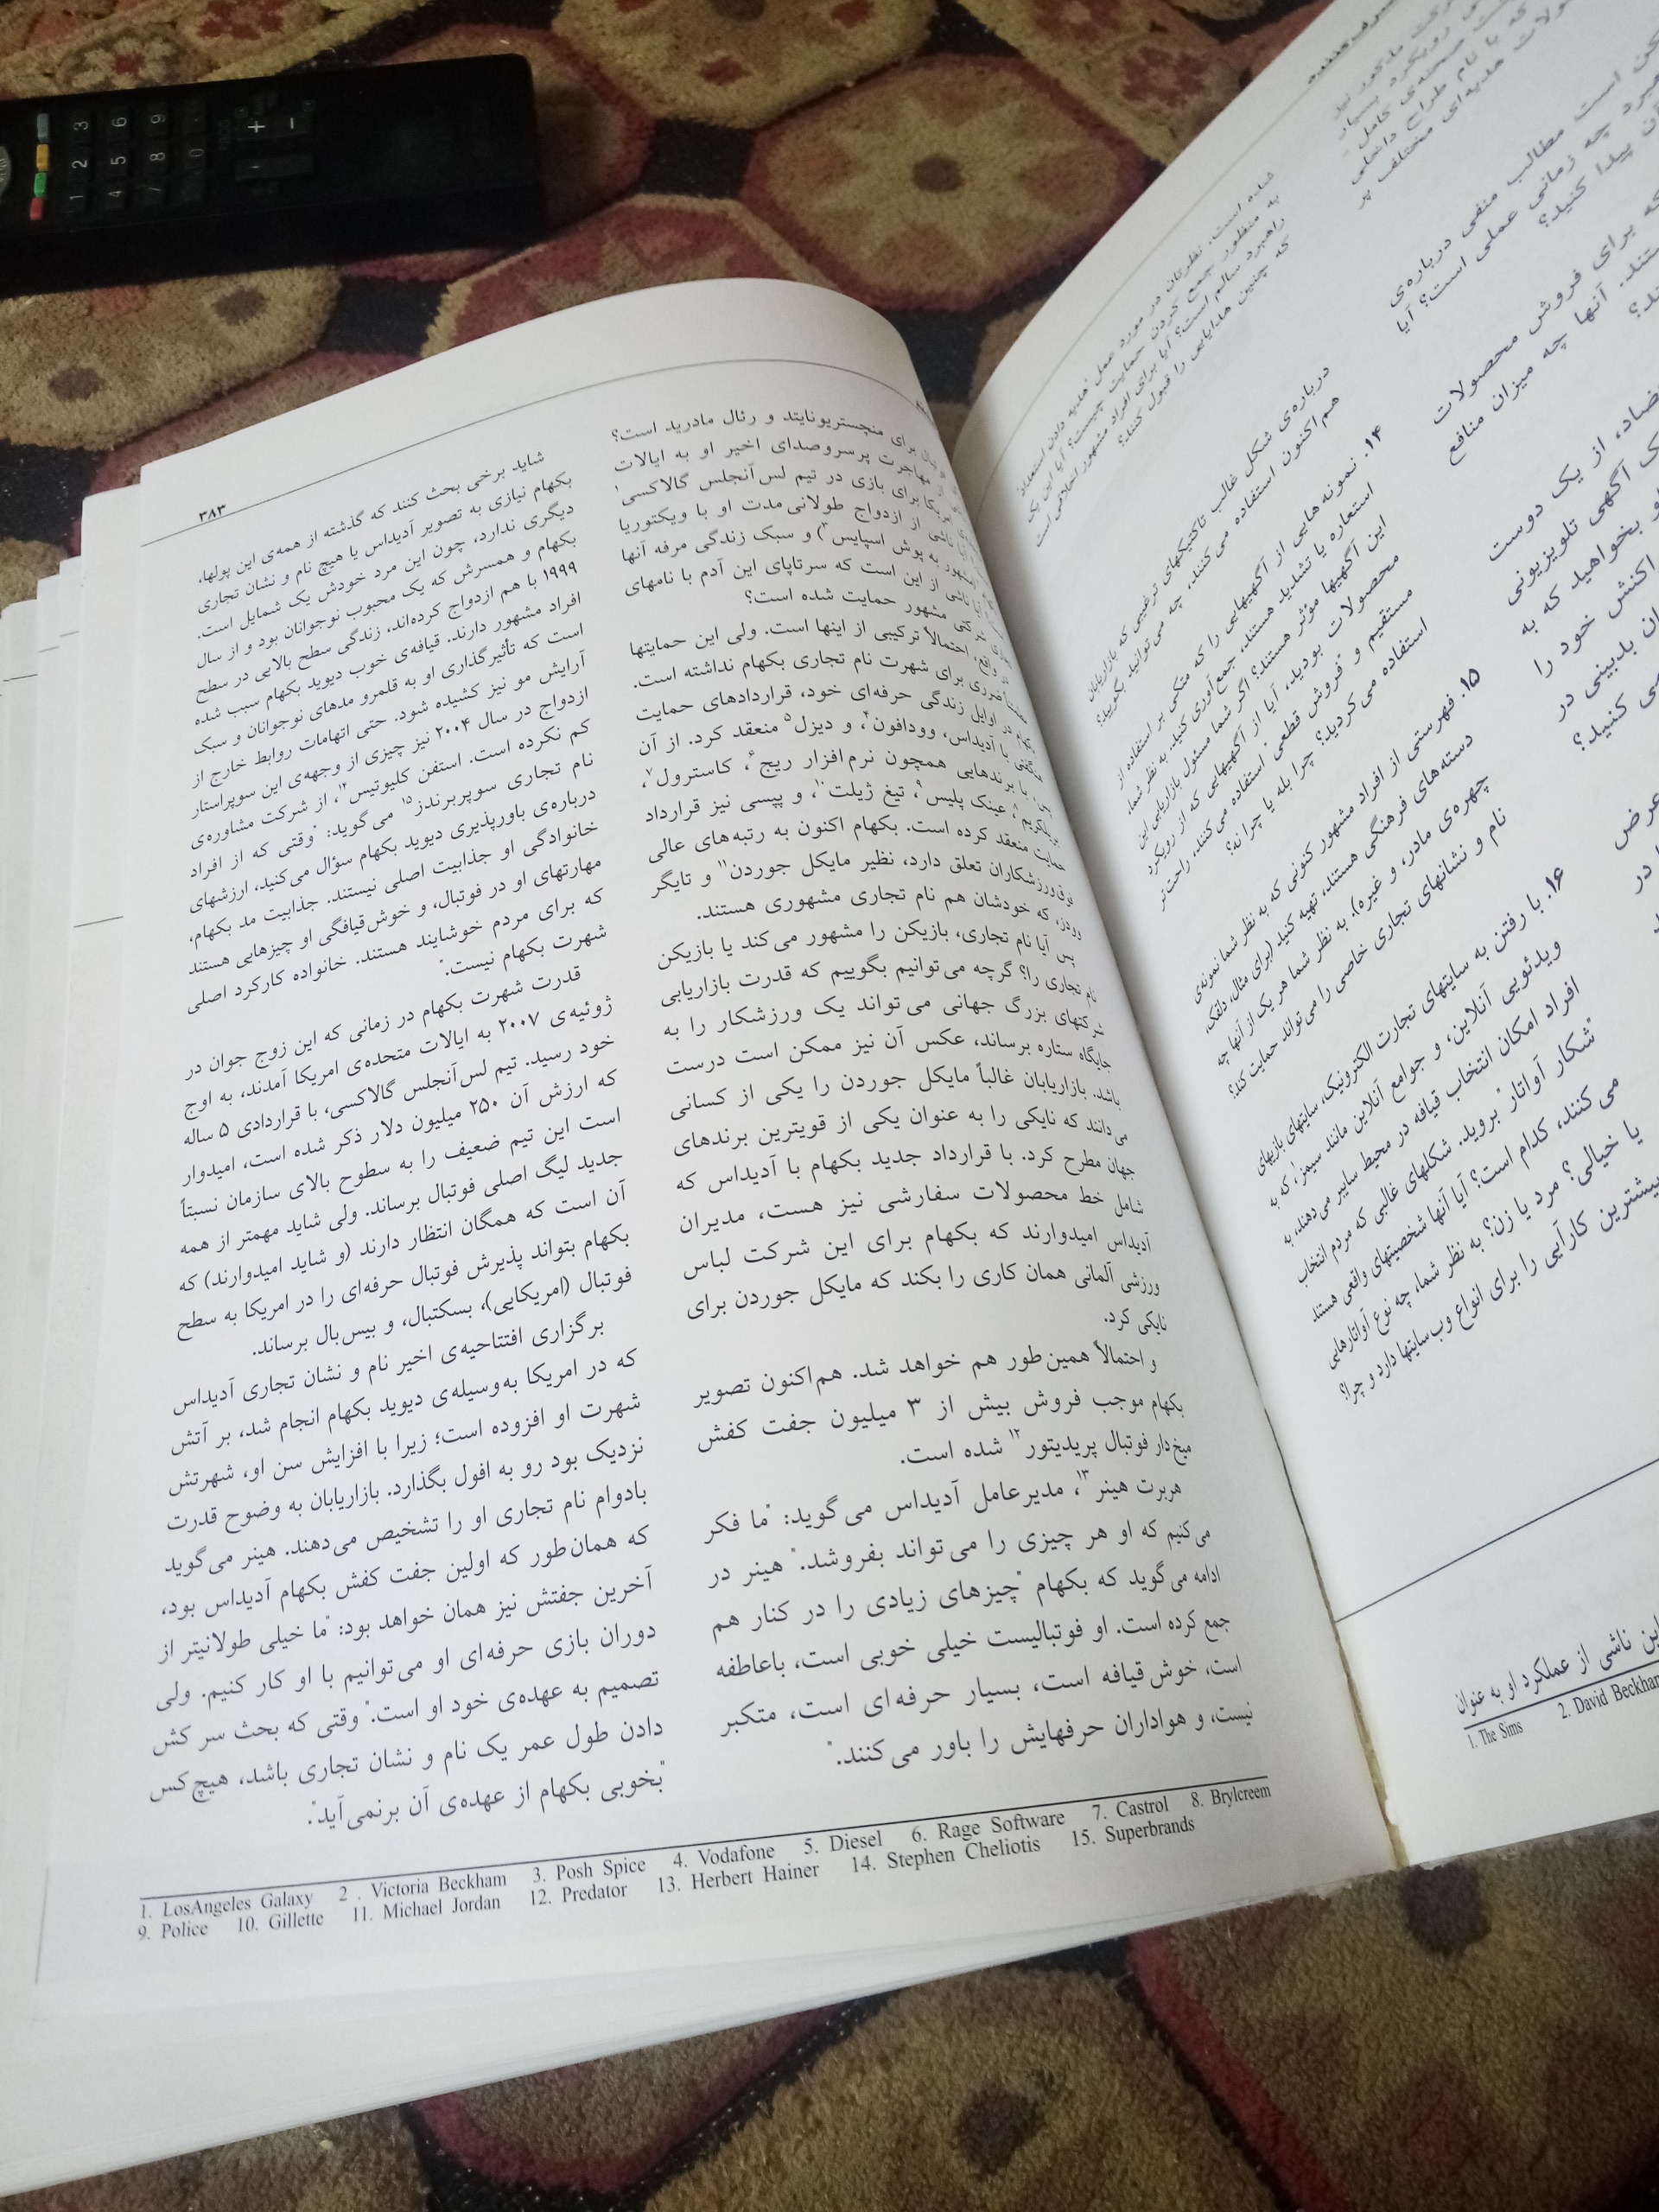 ۳۸۳
برای منچستریونایتد و رئال مادرید است؟
مهاجرت پرسروصدای اخیر او به ایالات
برای بازی در تیم لس‌آنجلس گالاکسی۱
از ازدواج طولانی‌مدت او با ویکتوریا
به پوش اسپایس۳) و سبک زندگی مرفه آنها
ناشی از این است که سرتاپای این آدم با نامهای
مشهور حمایت شده است؟
احتمالاً ترکیبی از اینها است. ولی این حمایتها
ضرری برای شهرت نام تجاری بکهام نداشته است.
در اوایل زندگی حرفه‌ای خود، قراردادهای حمایت
با آدیداس، وودافون۴، و دیزل۵ منعقد کرد. از آن
با برندهایی همچون نرم‌افزار ریج۶، کاسترول۷،
بریلکریم۸، عینک پلیس۹، تیغ ژیلت۱۰، و پپسی نیز قرارداد
حمایت منعقد کرده است. بکهام اکنون به رتبه‌های عالی
ورزشکاران تعلق دارد، نظیر مایکل جوردن۱۱ و تایگر
وودز، که خودشان هم نام تجاری مشهوری هستند.
پس آیا نام تجاری، بازیکن را مشهور می‌کند یا بازیکن
نام تجاری را؟ گرچه می‌توانیم بگوییم که قدرت بازاریابی
شرکتهای بزرگ جهانی می‌تواند یک ورزشکار را به
جایگاه ستاره برساند، عکس آن نیز ممکن است درست
باشد. بازاریابان غالباً مایکل جوردن را یکی از کسانی
می‌دانند که نایکی را به عنوان یکی از قویترین برندهای
جهان مطرح کرد. با قرارداد جدید بکهام با آدیداس که
شامل خط محصولات سفارشی نیز هست، مدیران
آدیداس امیدوارند که بکهام برای این شرکت لباس
ورزشی آلمانی همان کاری را بکند که مایکل جوردن برای
نایکی کرد.
و احتمالاً همین‌طور هم خواهد شد. هم‌اکنون تصویر
بکهام موجب فروش بیش از ۳ میلیون جفت کفش
میخ‌دار فوتبال پریدیتور۱۲ شده است.
هربرت هینر۱۳، مدیرعامل آدیداس می‌گوید: "ما فکر
می‌کنیم که او هر چیزی را می‌تواند بفروشد." هینر در
ادامه می‌گوید که بکهام "چیزهای زیادی را در کنار هم
جمع کرده است. او فوتبالیست خیلی خوبی است، باعاطفه
است، خوش قیافه است، بسیار حرفه‌ای است، متکبر
نیست، و هواداران حرفهایش را باور می‌کنند."
شاید برخی بحث کنند که گذشته از همه‌ی این پولها،
بکهام نیازی به تصویر آدیداس یا هیچ نام و نشان تجاری
دیگری ندارد، چون این مرد خودش یک شمایل است.
بکهام و همسرش که یک محبوب نوجوانان بود و از سال
۱۹۹۹ با هم ازدواج کرده‌اند، زندگی سطح بالایی در سطح
افراد مشهور دارند. قیافه‌ی خوب دیوید بکهام سبب شده
است که تأثیرگذاری او به قلمرو مدهای نوجوانان و سبک
آرایش مو نیز کشیده شود. حتی اتهامات روابط خارج از
ازدواج در سال ۲۰۰۴ نیز چیزی از وجهه‌ی این سوپراستار
کم نکرده است. استفن کلیوتیس۱۴، از شرکت مشاوره‌ی
نام تجاری سوپربرندز۱۵ می‌گوید: "وقتی که از افراد
درباره‌ی باورپذیری دیوید بکهام سؤال می‌کنید، ارزشهای
خانوادگی او جذابیت اصلی نیستند. جذابیت مد بکهام،
مهارتهای او در فوتبال، و خوش‌قیافگی او چیزهایی هستند
که برای مردم خوشایند هستند. خانواده کارکرد اصلی
شهرت بکهام نیست."
قدرت شهرت بکهام در زمانی که این زوج جوان در
ژوئیه‌ی ۲۰۰۷ به ایالات متحده‌ی امریکا آمدند، به اوج
خود رسید. تیم لس‌آنجلس گالاکسی، با قراردادی ۵ ساله
که ارزش آن ۲۵۰ میلیون دلار ذکر شده است، امیدوار
است این تیم ضعیف را به سطوح بالای سازمان نسبتاً
جدید لیگ اصلی فوتبال برساند. ولی شاید مهمتر از همه
آن است که همگان انتظار دارند (و شاید امیدوارند) که
بکهام بتواند پذیرش فوتبال حرفه‌ای را در امریکا به سطح
فوتبال (امریکایی)، بسکتبال، و بیس‌بال برساند.
برگزاری افتتاحیه‌ی اخیر نام و نشان تجاری آدیداس
که در امریکا به‌وسیله‌ی دیوید بکهام انجام شد، بر آتش
شهرت او افزوده است؛ زیرا با افزایش سن او، شهرتش
نزدیک بود رو به افول بگذارد. بازاریابان به وضوح قدرت
بادوام نام تجاری او را تشخیص می‌دهند. هینر می‌گوید
که همان‌طور که اولین جفت کفش بکهام آدیداس بود،
آخرین جفتش نیز همان خواهد بود: "ما خیلی طولانیتر از
دوران بازی حرفه‌ای او می‌توانیم با او کار کنیم. ولی
تصمیم به عهده‌ی خود او است." وقتی که بحث سر کش
دادن طول عمر یک نام و نشان تجاری باشد، هیچ‌کس
"بخوبی بکهام از عهده‌ی آن برنمی‌آید".
1. LosAngeles Galaxy 2 . Victoria Beckham 3. Posh Spice 4. Vodafone 5. Diesel 6. Rage Software 7. Castrol 8. Brylcreem
9. Police 10. Gillette 11. Michael Jordan 12. Predator 13. Herbert Hainer 14. Stephen Cheliotis 15. Superbrands
شده است. نظرتان در مورد عمل هدیه دادن
به منظور جمع کردن حمایت چیست؟ آیا این یک
راهبرد سالم است؟ آیا برای افراد مشهور اخلاقی است
که چنین هدایایی را قبول کنند؟
درباره‌ی شکل غالب تاکتیکهای ترغیبی که بازاریابان
هم‌اکنون استفاده می‌کنند، چه می‌توانید بگویید؟
۱۴. نمونه‌هایی از آگهیهایی را که متکی بر استفاده از
استعاره یا تشدید هستند، جمع‌آوری کنید. به نظر شما،
این آگهیها مؤثر هستند؟ اگر شما مسئول بازاریابی این
محصولات بودید، آیا از آگهیهایی که از رویکرد
مستقیم و "فروش قطعی" استفاده می‌کنند، راحت‌تر
استفاده می‌کردید؟ چرا بله یا چرا نه؟
۱۵. فهرستی از افراد مشهور کنونی که به نظر شما نمونه‌ی
دسته‌های فرهنگی هستند، تهیه کنید (برای مثال، دلقک،
چهره‌ی مادر، و غیره). به نظر شما هر یک از آنها چه
نام و نشانهای تجاری خاصی را می‌تواند حمایت کند؟
۱۶. با رفتن به سایتهای تجارت الکترونیک، سایتهای بازیهای
ویدئویی آنلاین، و جوامع آنلاین مانند سیمز۱، که به
افراد امکان انتخاب قیافه در محیط سایبر می‌دهند، به
"شکار آواتار" بروید. شکلهای غالبی که مردم انتخاب
می‌کنند، کدام است؟ آیا آنها شخصیتهای واقعی هستند
یا خیالی؟ مرد یا زن؟ به نظر شما، چه نوع آواتارهایی
بیشترین کارآیی را برای انواع وب‌سایتها دارد و چرا؟
ناشی از عملکرد او به عنوان
1. The Sims 2. David Beckham